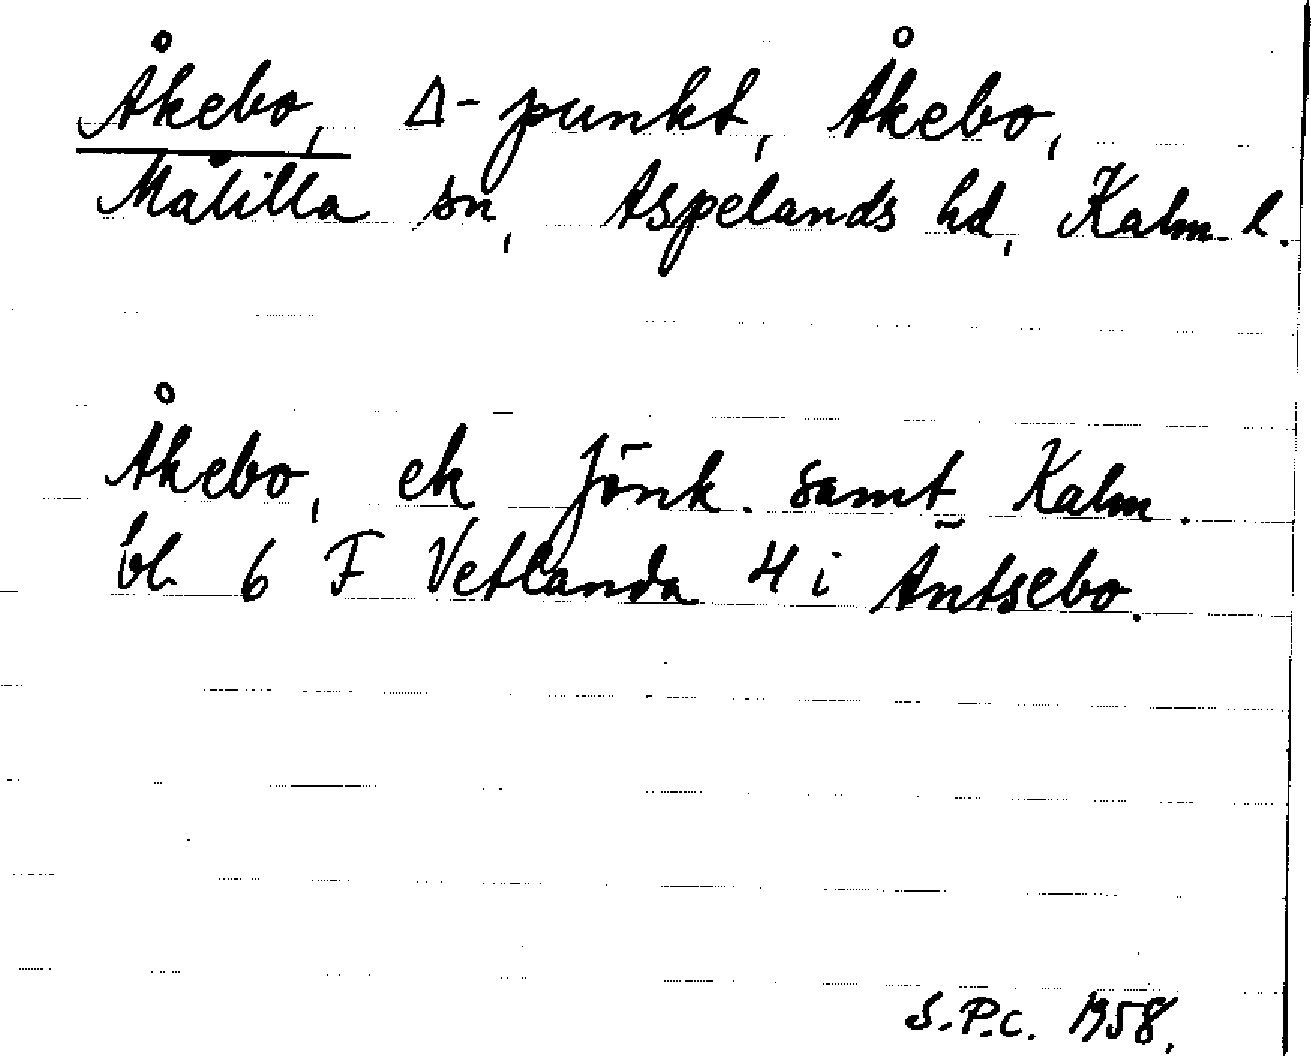 Åkebo, Δ-punkt, Åkebo,
Målilla sn, Aspelands hd, Kalm. l.
Åkebo, ek Jönk. samt Kalm.
bl. 6 F Vetlanda 4 i Äntsebo.
S.P.C. 1958.